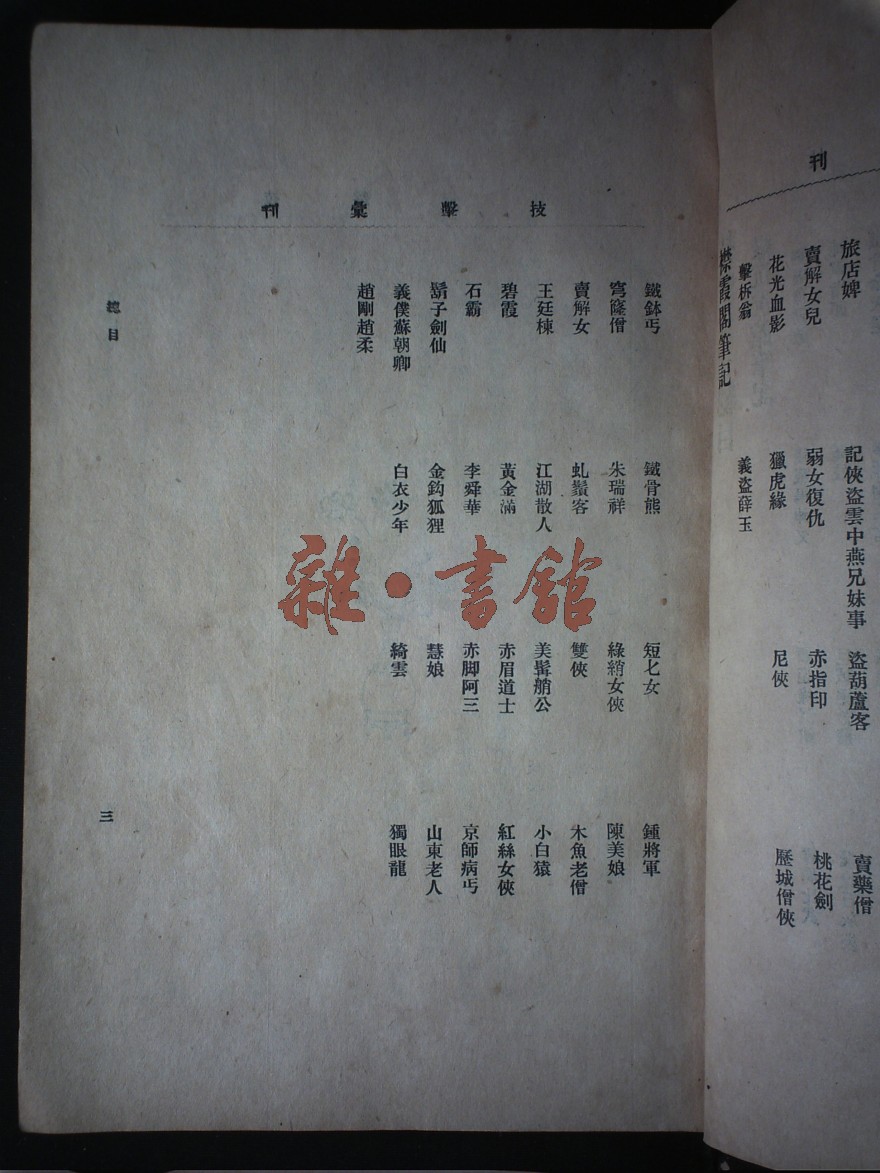 刊
旅店婢
記俠盜雲中燕兄妹事
盜葫蘆客
賣藥僧
賣解女兒
弱女復仇
赤指印
桃花劍
花光血影
獵虎緣
尼俠
歷城僧俠
擊柝翁
義盜薛玉
襟霞閣筆記
技擊彙刊
鐵鉢丐
鐵骨熊
短匕女
鍾將軍
穹窿僧
朱瑞祥
綠綃女俠
陳美娘
賣解女
虬鬚客
雙俠
木魚老僧
王廷棟
江湖散人
美髯艄公
小白猿
碧霞
黃金滿
赤眉道士
紅絲女俠
石霸
李舜華
赤脚阿三
京師病丐
鬍子劍仙
金鈎狐狸
慧娘
山東老人
義僕蘇朝卿
白衣少年
綺雲
獨眼龍
趙剛趙柔
總目
三
雜·書館